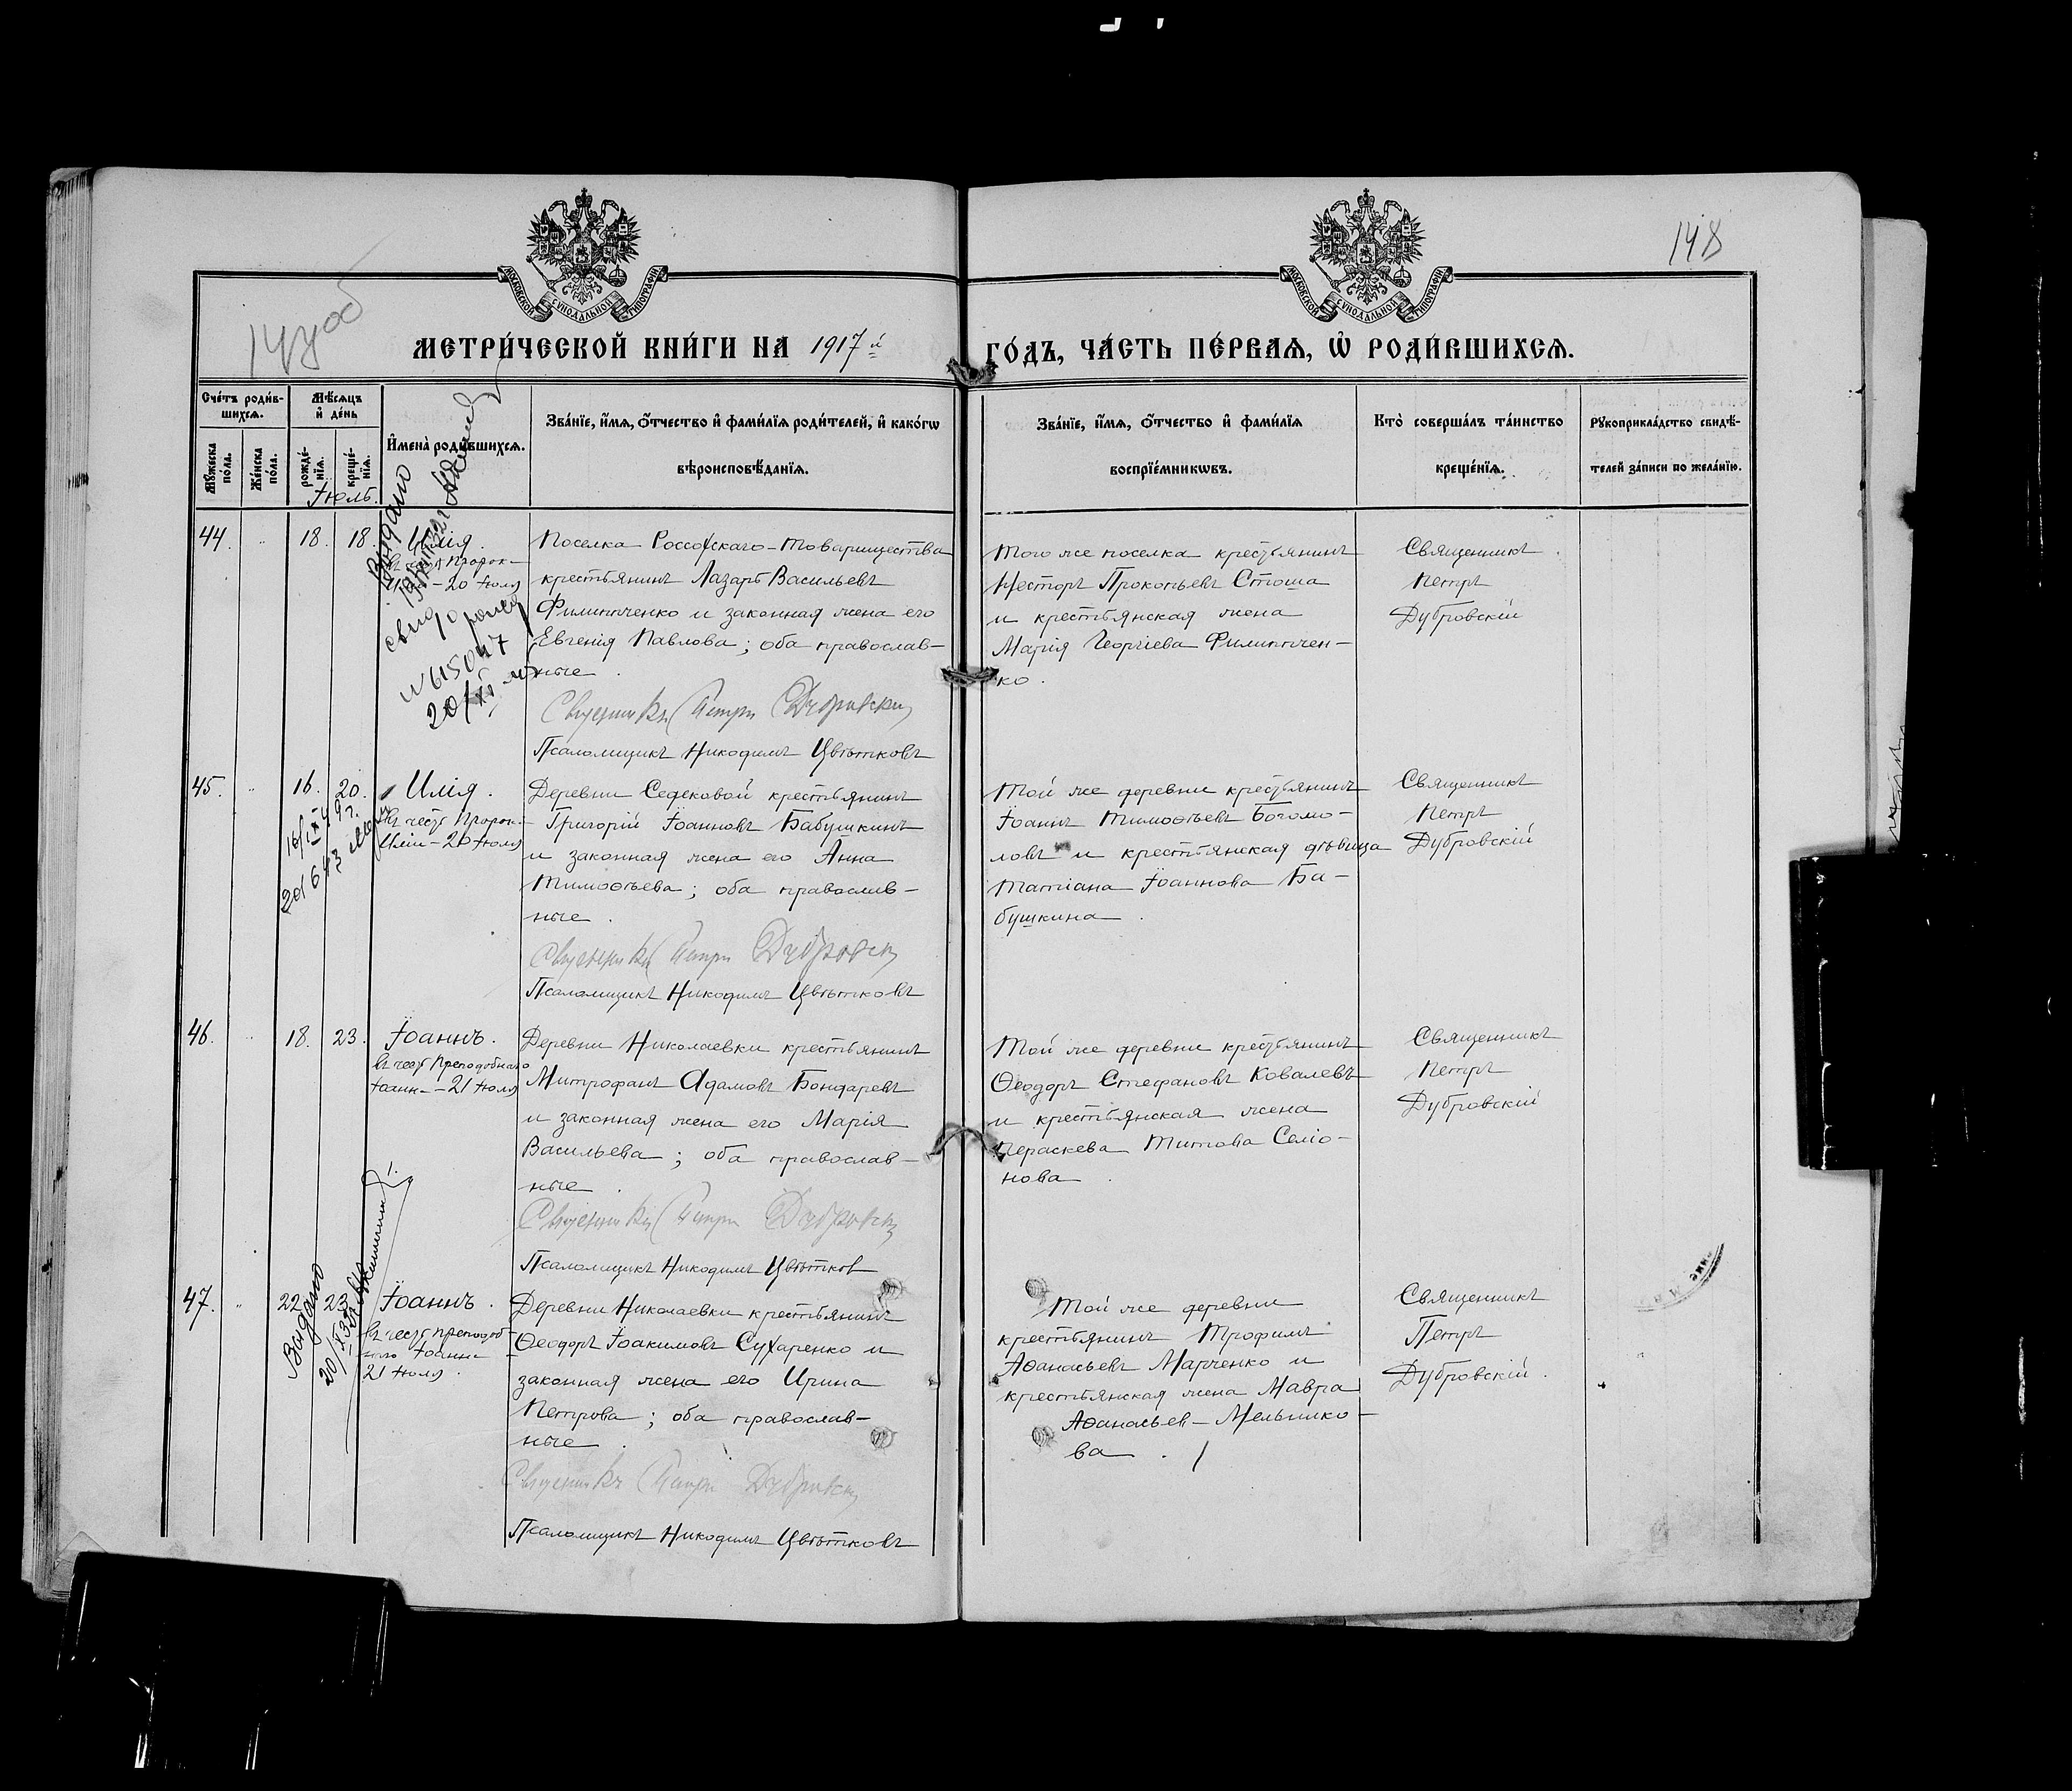 148
МОСКОВСКОЙ СѴНОДАЛЬНОЙ ТИПОГРАФІИ
МОСКОВСКОЙ СѴНОДАЛЬНОЙ ТИПОГРАФІИ
МЕТРИ́ЧЕСКОЙ КНИ́ГИ НА 1917й
ГО́ДЪ, ЧА́СТЬ ПЕ́РВАѦ, Ѡ҆ РОДИ́ВШИХСѦ.
Сче́тъ роди́в-
шихсѧ.
Мѣ́сѧцъ
и҆ де́нь
Мꙋ́жеска
по́ла.
Же́нска
по́ла.
рожде́-
нїѧ.
креще́-
нїѧ.
Іюль.
И҆мена̀ роди́вшихсѧ.
Зва́нїе, и҆́мѧ, ѻ҆́тчество и҆ фами́лїѧ роди́телей, и҆ како́гѡ
вѣроисповѣ́данїѧ.
Зва́нїе, и҆́мѧ, ѻ҆́тчество и҆ фами́лїѧ
воспрїе́мникѡвъ.
Кто̀ соверша́лъ та́инство
креще́нїѧ.
Рꙋкоприкла́дство свидѣ́-
телей за́писи по жела́нїю.
44.
18. 18.
Илія.
въ честь Пророк-
Иліи - 20 Іюля
Выдано
20/XI
Поселка Россохскаго-Товарищества
крестьянинъ Лазарь Васильевъ
Филипченко и законная жена его
Евгенія Павлова; оба православ-
ные.
Священникъ Петръ Дубровскій
Псаломщикъ Никодимъ Цвѣтковъ
Того же поселка крестьянинъ
Несторъ Прокопьевъ Стоша
и крестьянская жена
Марія Георгіева Филиппчен-
ко.
Священникъ
Петръ
Дубровскій
45.
16. 20.
Илія.
въ честь Пророк.
Иліи - 20 Іюля
Деревни Седековой крестьянинъ
Григорій Іоанновъ Бабушкинъ
и законная жена его Анна
Тимоѳеева; оба православ-
ные.
Священникъ Петръ Дубровскій
Псаломщикъ Никодимъ Цвѣтковъ
Той же деревни крестьянинъ
Іоаннъ Тимоѳеевъ Богомо-
ловъ и крестьянская дѣвица
Татіана Іоаннова Ба-
бушкина.
Священникъ
Петръ
Дубровскій
46.
18. 23.
Іоаннъ.
въ честь Преподобнаго
Іоанн- - 21 Іюля
Деревни Николаевки крестьянинъ
Митрофанъ Адамовъ Бондаревъ
и законная жена его Марія
Васильева; оба православ-
ные.
Священникъ Петръ Дубровскій
Псаломщикъ Никодимъ Цвѣтков
Той же деревни крестьянинъ
Ѳеодоръ Стефановъ Ковалевъ
и крестьянская жена
Пераскева Титова Селіо-
нова.
Священникъ
Петръ
Дубровскій
47.
22. 23.
Выдано
Іоаннъ.
въ честь преподоб-
наго Іоанна
21 Іюля.
Деревни Николаевки крестьянинъ
Ѳеодоръ Іоакимовъ Сухаренко и
законная жена его Ирина
Петрова; оба православ-
ные.
Священникъ Петръ Дубровскій
Псаломщикъ Никодимъ Цвѣтковъ
Той же деревни
крестьянинъ Трофимъ
Аѳанасьевъ Марченко и
крестьянская жена Мавра
Аѳанасьев- Мельнико-
ва.
Священникъ
Петръ
Дубровскій.